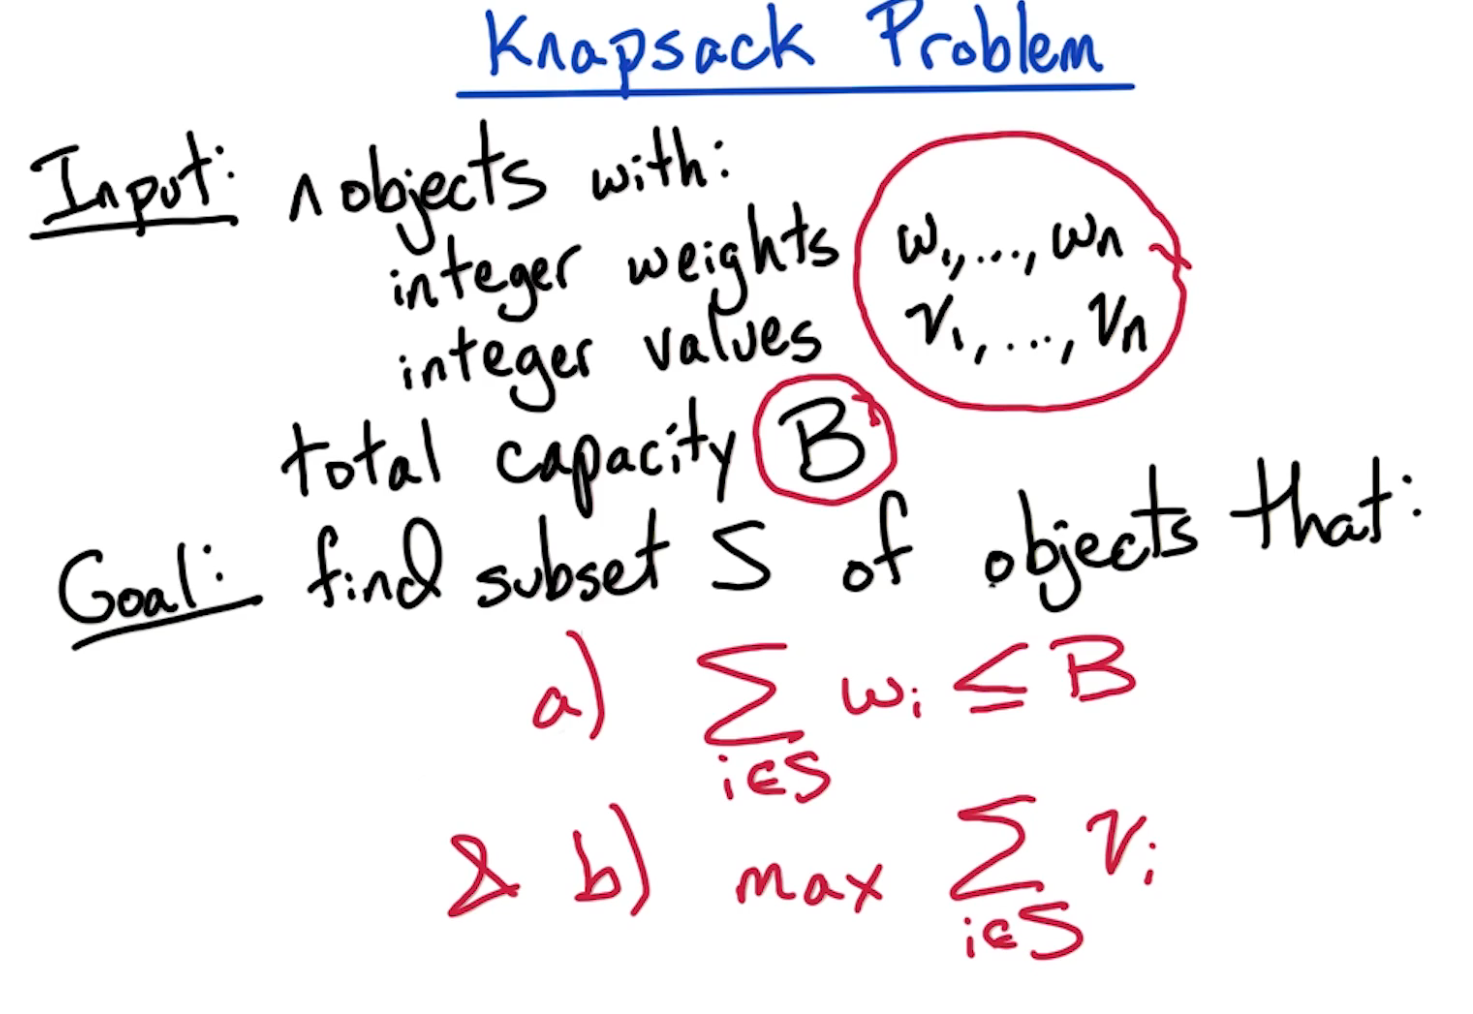 Knapsack Problem
Input: n objects with:
integer weights w₁, ..., wₙ
integer values v₁, ..., vₙ
total capacity B
Goal: find subset S of objects that:
a) ∑ wᵢ ≤ B
i∈S
& b) max ∑ vᵢ
i∈S